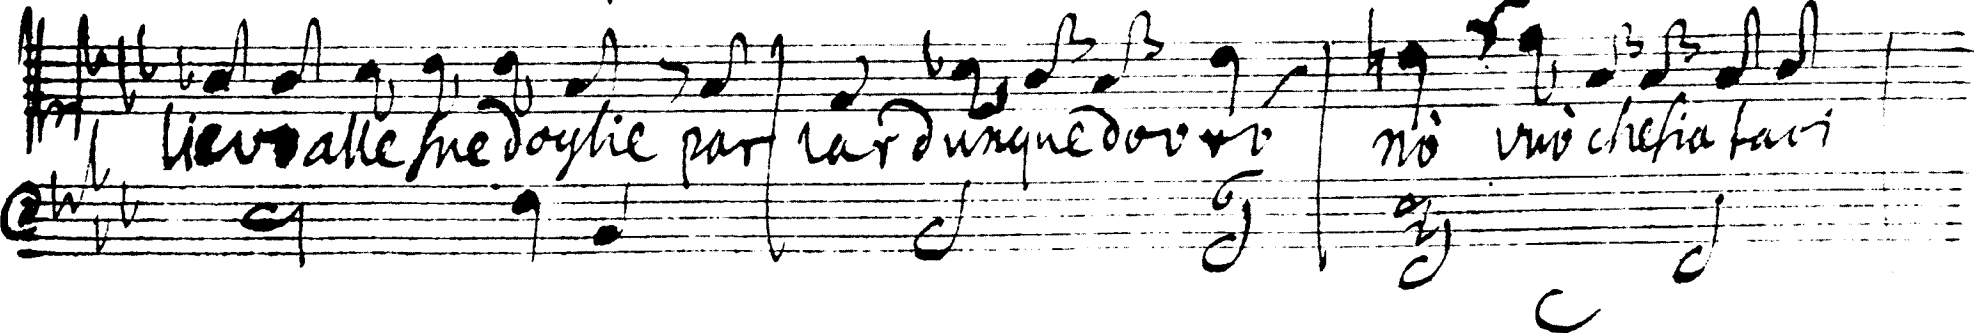 lievo alle sue doglie par lar dunque dovrò nò vuò che sia taci